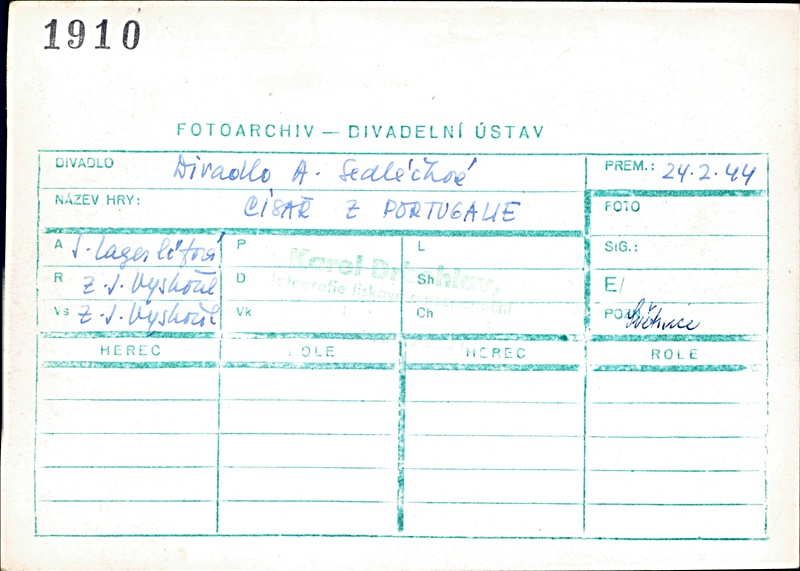 1910
FOTOARCHIV — DIVADELNÍ ÚSTAV
DIVADLO Divadlo A. Sedláčkové PREM.: 24.2.44
NÁZEV HRY: CÍSAŘ Z PORTUGALIE FOTO
A S. Lagerlöfová P L SIG.:
R Z. J. Vyskočil D Sh E/
Vs Z. J. Vyskočil Vk Ch
Karel Drbohlav,
HEREC ROLE HEREC ROLE